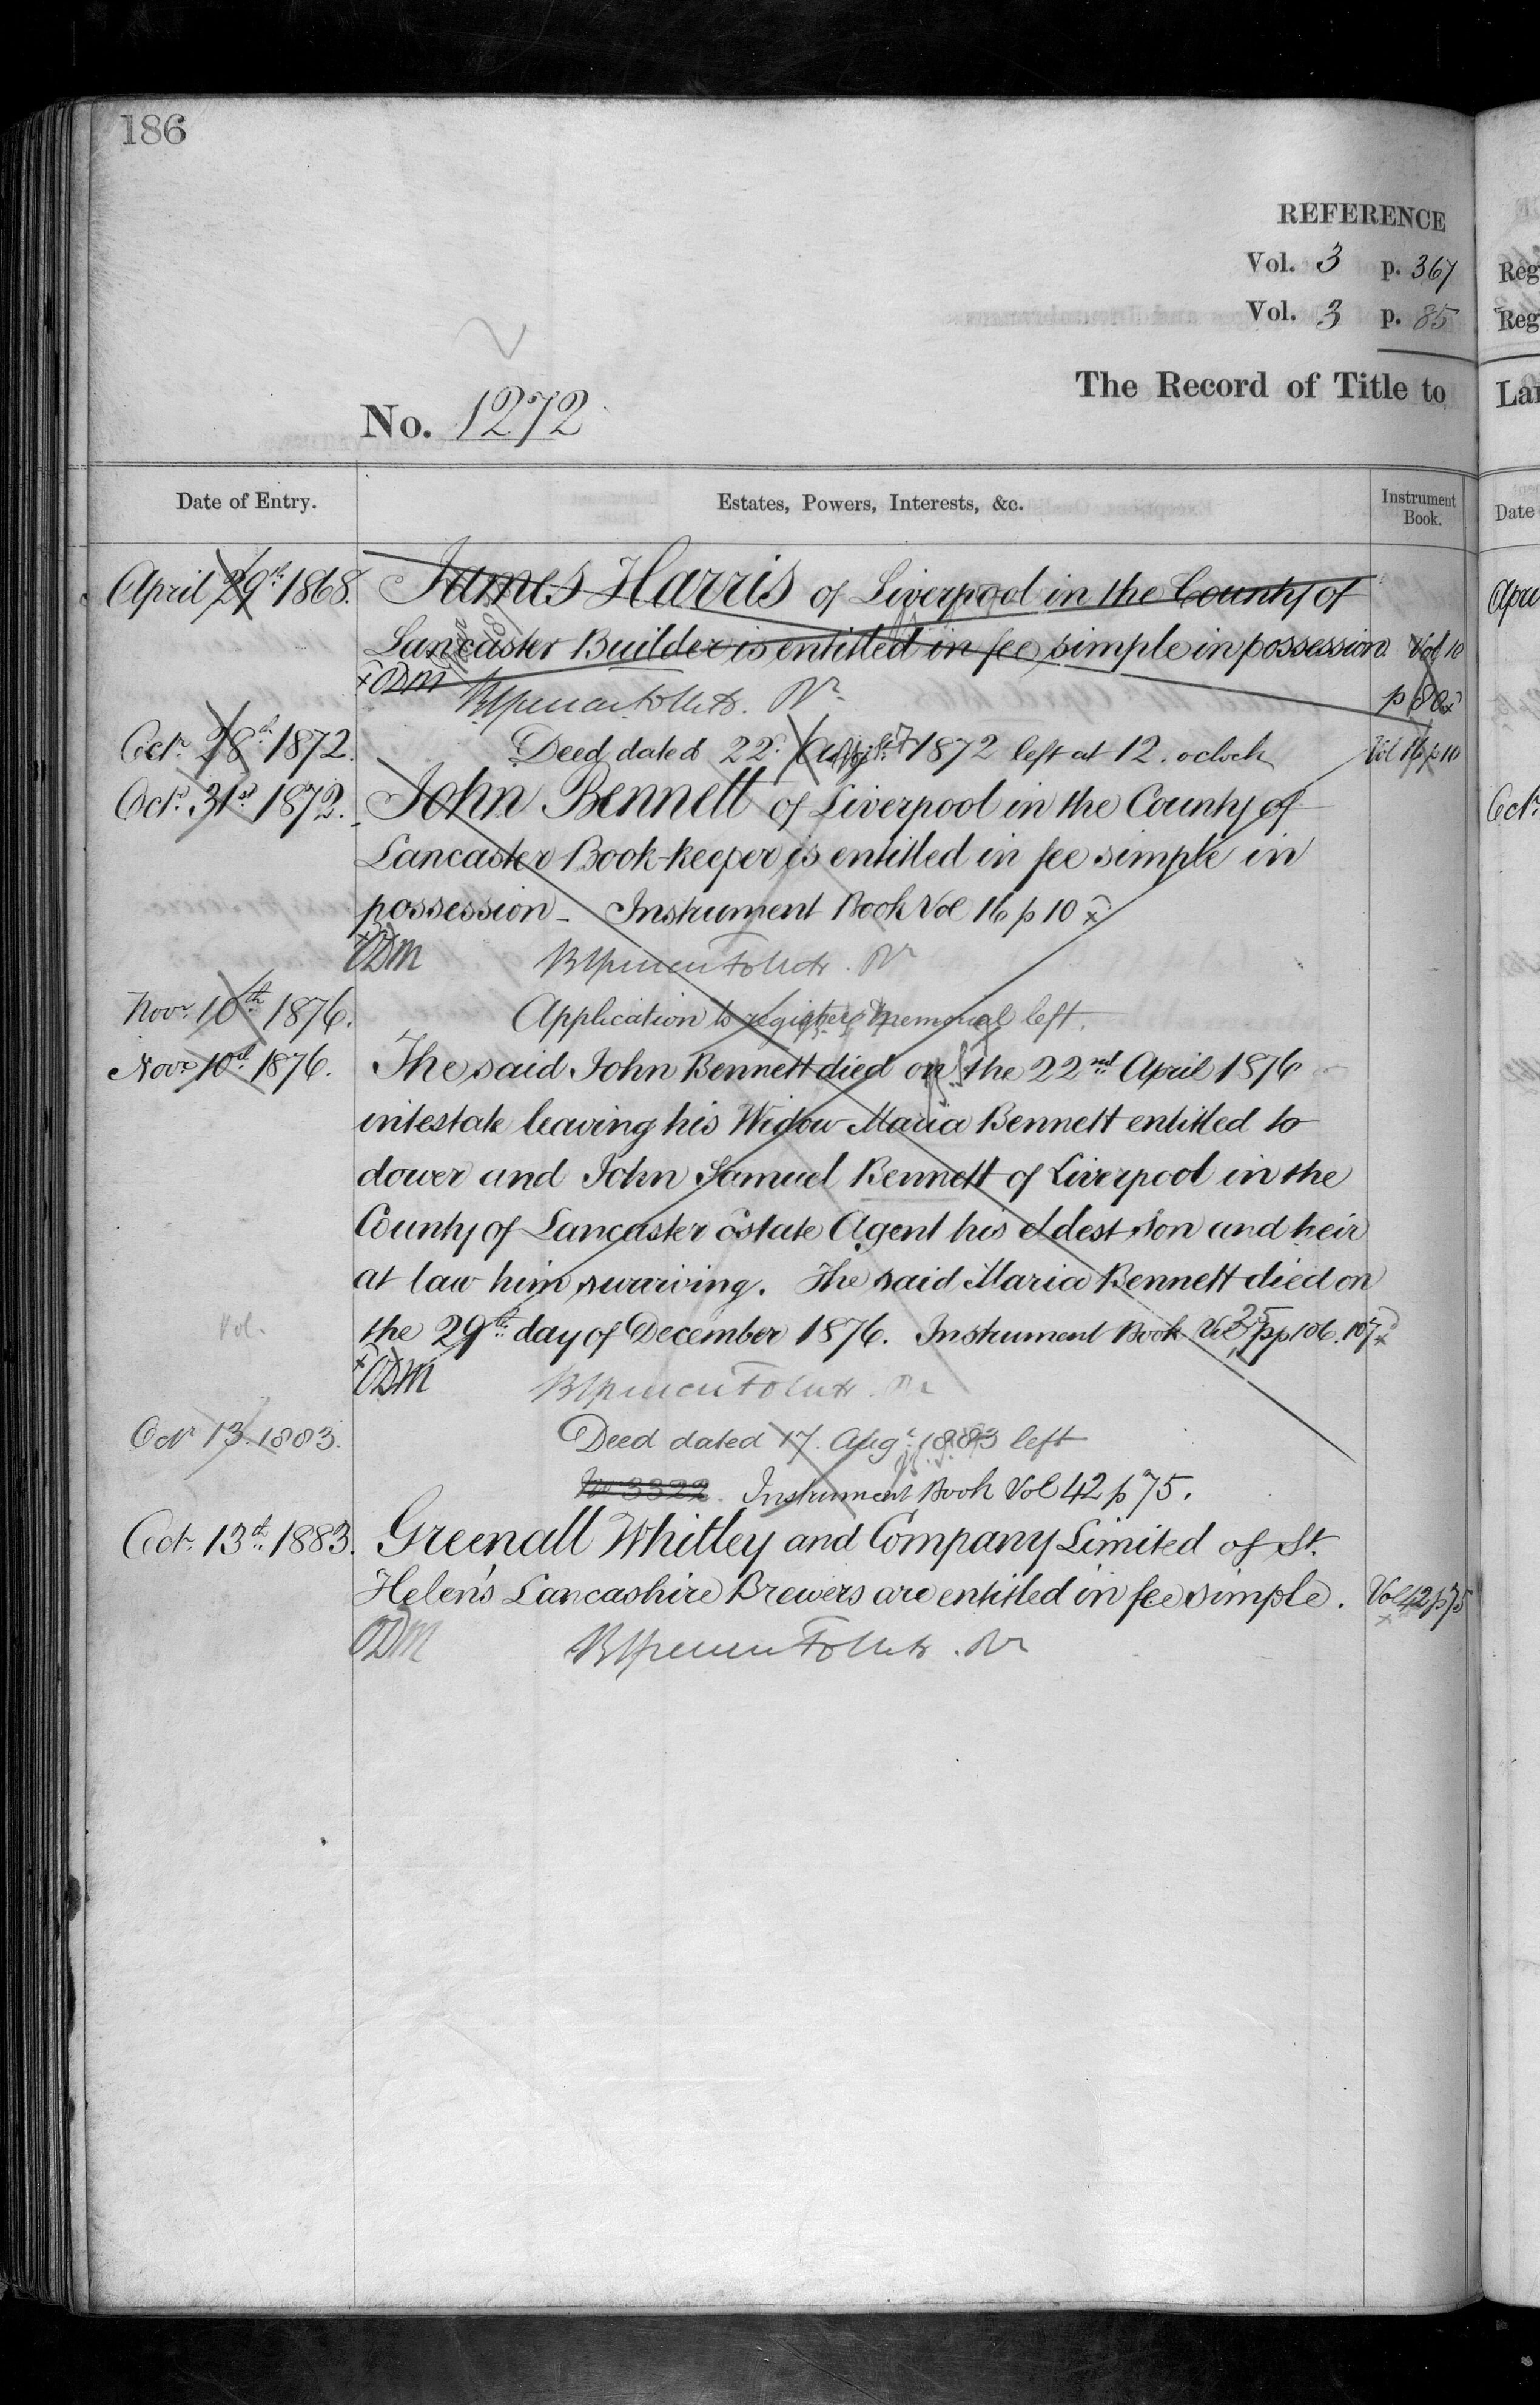 186
REFERENCE
Vol. 3 p. 367
Vol. 3 p. 85
The Record of Title to
No. 1272
Date of Entry. Estates, Powers, Interests, &c. Instrument Book.
April 29th 1868. James Harris of Liverpool in the County of
Lancaster Builder is entitled in fee simple in possession. Vol 10
ODM p 80
Octr. 28th 1872. Deed dated 22d. August 1872 left at 12. oclock Vol 16 p 10
Octr. 31st 1872. John Bennett of Liverpool in the County of
Lancaster Book-keeper is entitled in fee simple in
possession - Instrument Book Vol 16 p 10
ODM
Novr. 10th 1876. Application to register memorial left.
Novr. 10th 1876. The said John Bennett died on the 22nd April 1876
intestate leaving his Widow Maria Bennett entitled to
dower and John Samuel Bennett of Liverpool in the
County of Lancaster Estate Agent his eldest son and heir
at law him surviving. The said Maria Bennett died on
Vol. the 29th day of December 1876. Instrument Book Vol 25 pp 106. 107
ODM
Octr 13. 1883. Deed dated 17. Augt. 1883 left
No 3322. Instrument Book Vol 42 p 75.
Oct. 13th. 1883. Greenall Whitley and Company Limited of St.
Helen's Lancashire Brewers are entitled in fee simple. Vol 42 p 75
ODM
Reg
Reg
Date
Octr